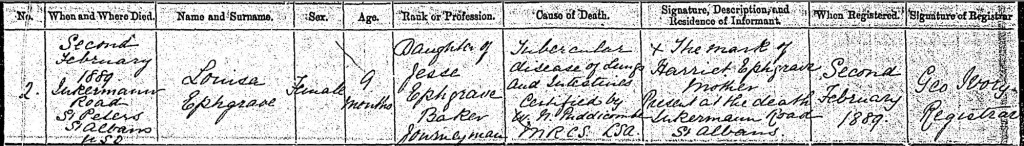 No.
When and Where Died.
Name and Surname.
Sex.
Age.
Rank or Profession.
Cause of Death.
Signature, Description, and
Residence of Informant.
When Registered.
Signature of Registrar
2.
Second
February
1889
Inkermann
Road
St Peters
St Albans
USD
Louisa
Ephgrave
Female
9
Months
Daughter of
Jesse
Ephgrave
Baker
Journeyman
Tubercular
disease of Lungs
and Intestines
Certified by
W. N. Puddicombe
MRCS. LSA.
X The mark of
Harriet Ephgrave
Mother
Present at the death
Inkermann Road
St Albans
Second
February
1889.
Geo Ivory
Registrar